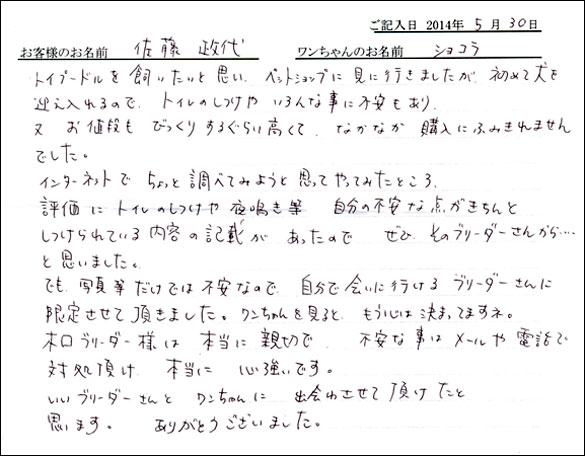 ご記入日 2014年 5月 30日
お客様のお名前 佐藤 政代 ワンちゃんのお名前 ショコラ
トイプードルを飼いたいと思い、ペットショップに見に行きましたが、初めて犬を
迎え入れるので、トイレのしつけや いろんな事に不安もあり、
又 お値段も びっくりするぐらい高くて、なかなか 購入にふみきれません
でした。
インターネットで ちょっと調べてみようと思ってやってみたところ、
評価に トイレのしつけや 夜鳴き等 自分の不安な点がきちんと
しつけられている内容の記載が あったので ぜひ そのブリーダーさんから…
と思いました。
でも、写真等だけでは不安なので、自分で会いに行ける ブリーダーさんに
限定させて頂きました。ワンちゃんを見ると、もう心は決まってますネ。
木口ブリーダー様は 本当に親切で、不安な事はメールや電話で
対処頂け 本当に 心強いです。
いいブリーダーさんと ワンちゃんに 出会わさせて頂けたと
思います。 ありがとうございました。